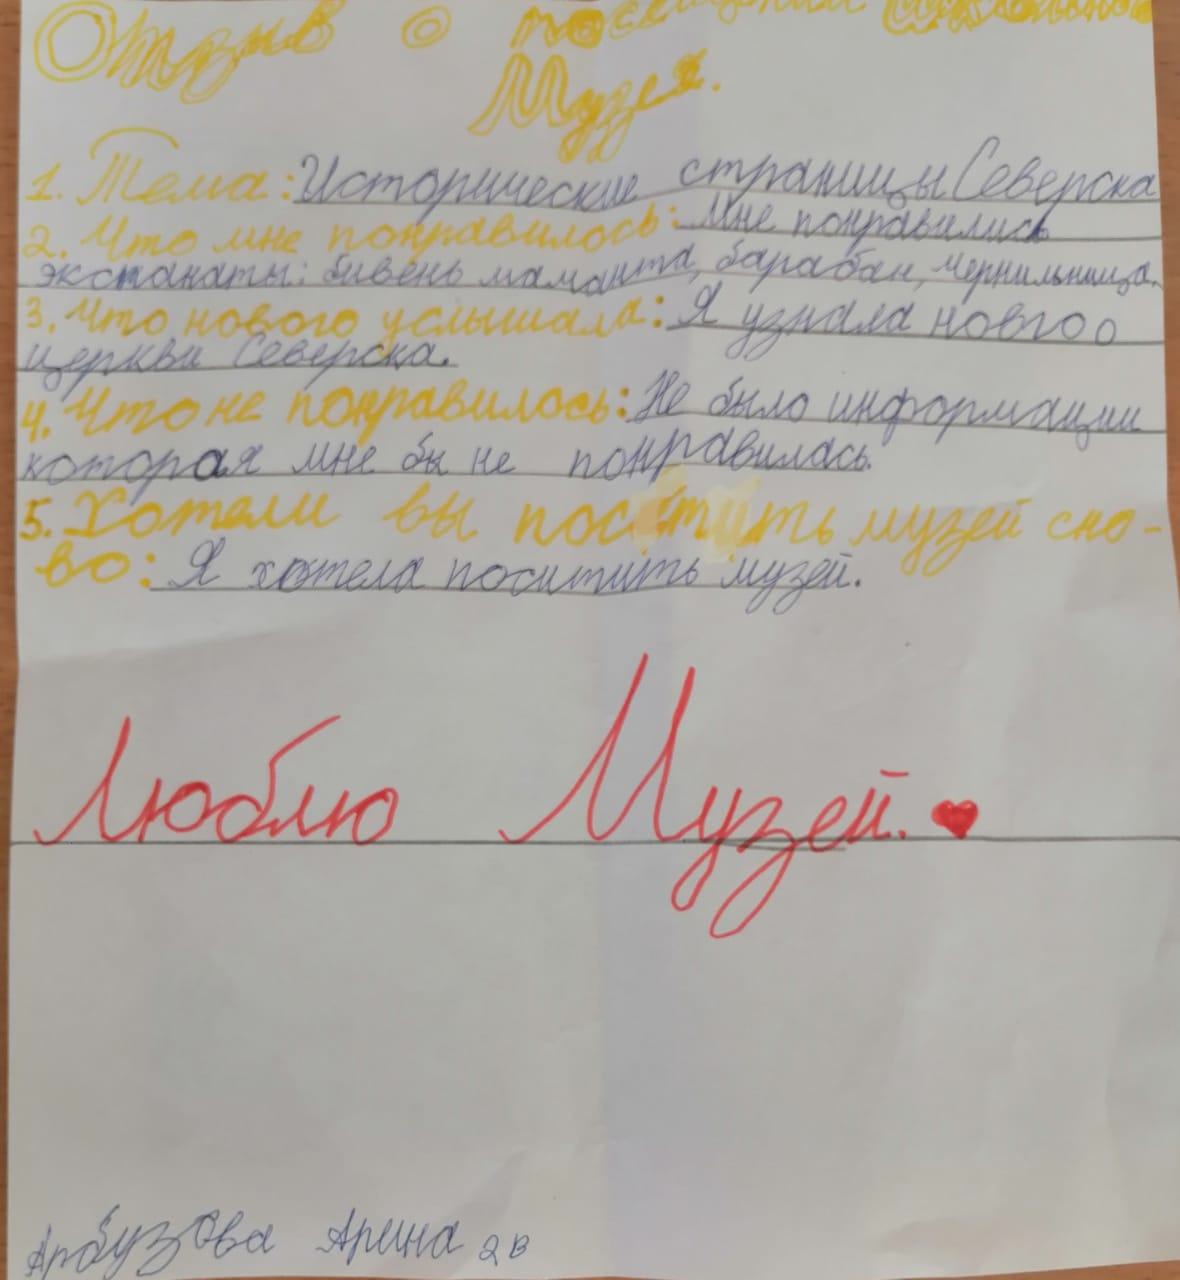 Отзыв о посещении школьного
Музея.
1. Тема: Исторические страницы Северска
2. Что мне понравилось: Мне понравились
экстанаты: бивень маманта, барабан, чернильница.
3. Что нового услышала: Я узнала новго о
церкви Северска.
4. Что не понравилось: Не было информации
которая мне бы не понравилась.
5. Хотели вы поситить музей сно-
во: Я хотела поситить музей.
Люблю Музей. ♥
Арбузова Арина 2в